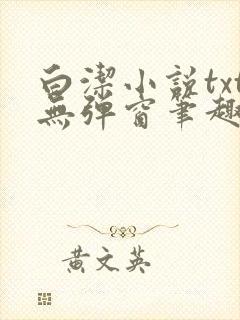 白潔小説txt
無彈窗筆趣
黄文英